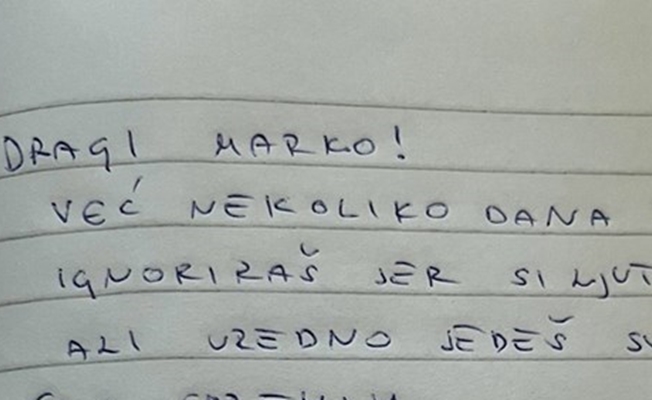 DRAGI MARKO!
VEĆ NEKOLIKO DANA
IGNORIRAŠ JER SI LJUT
ALI UZEDNO JEDEŠ